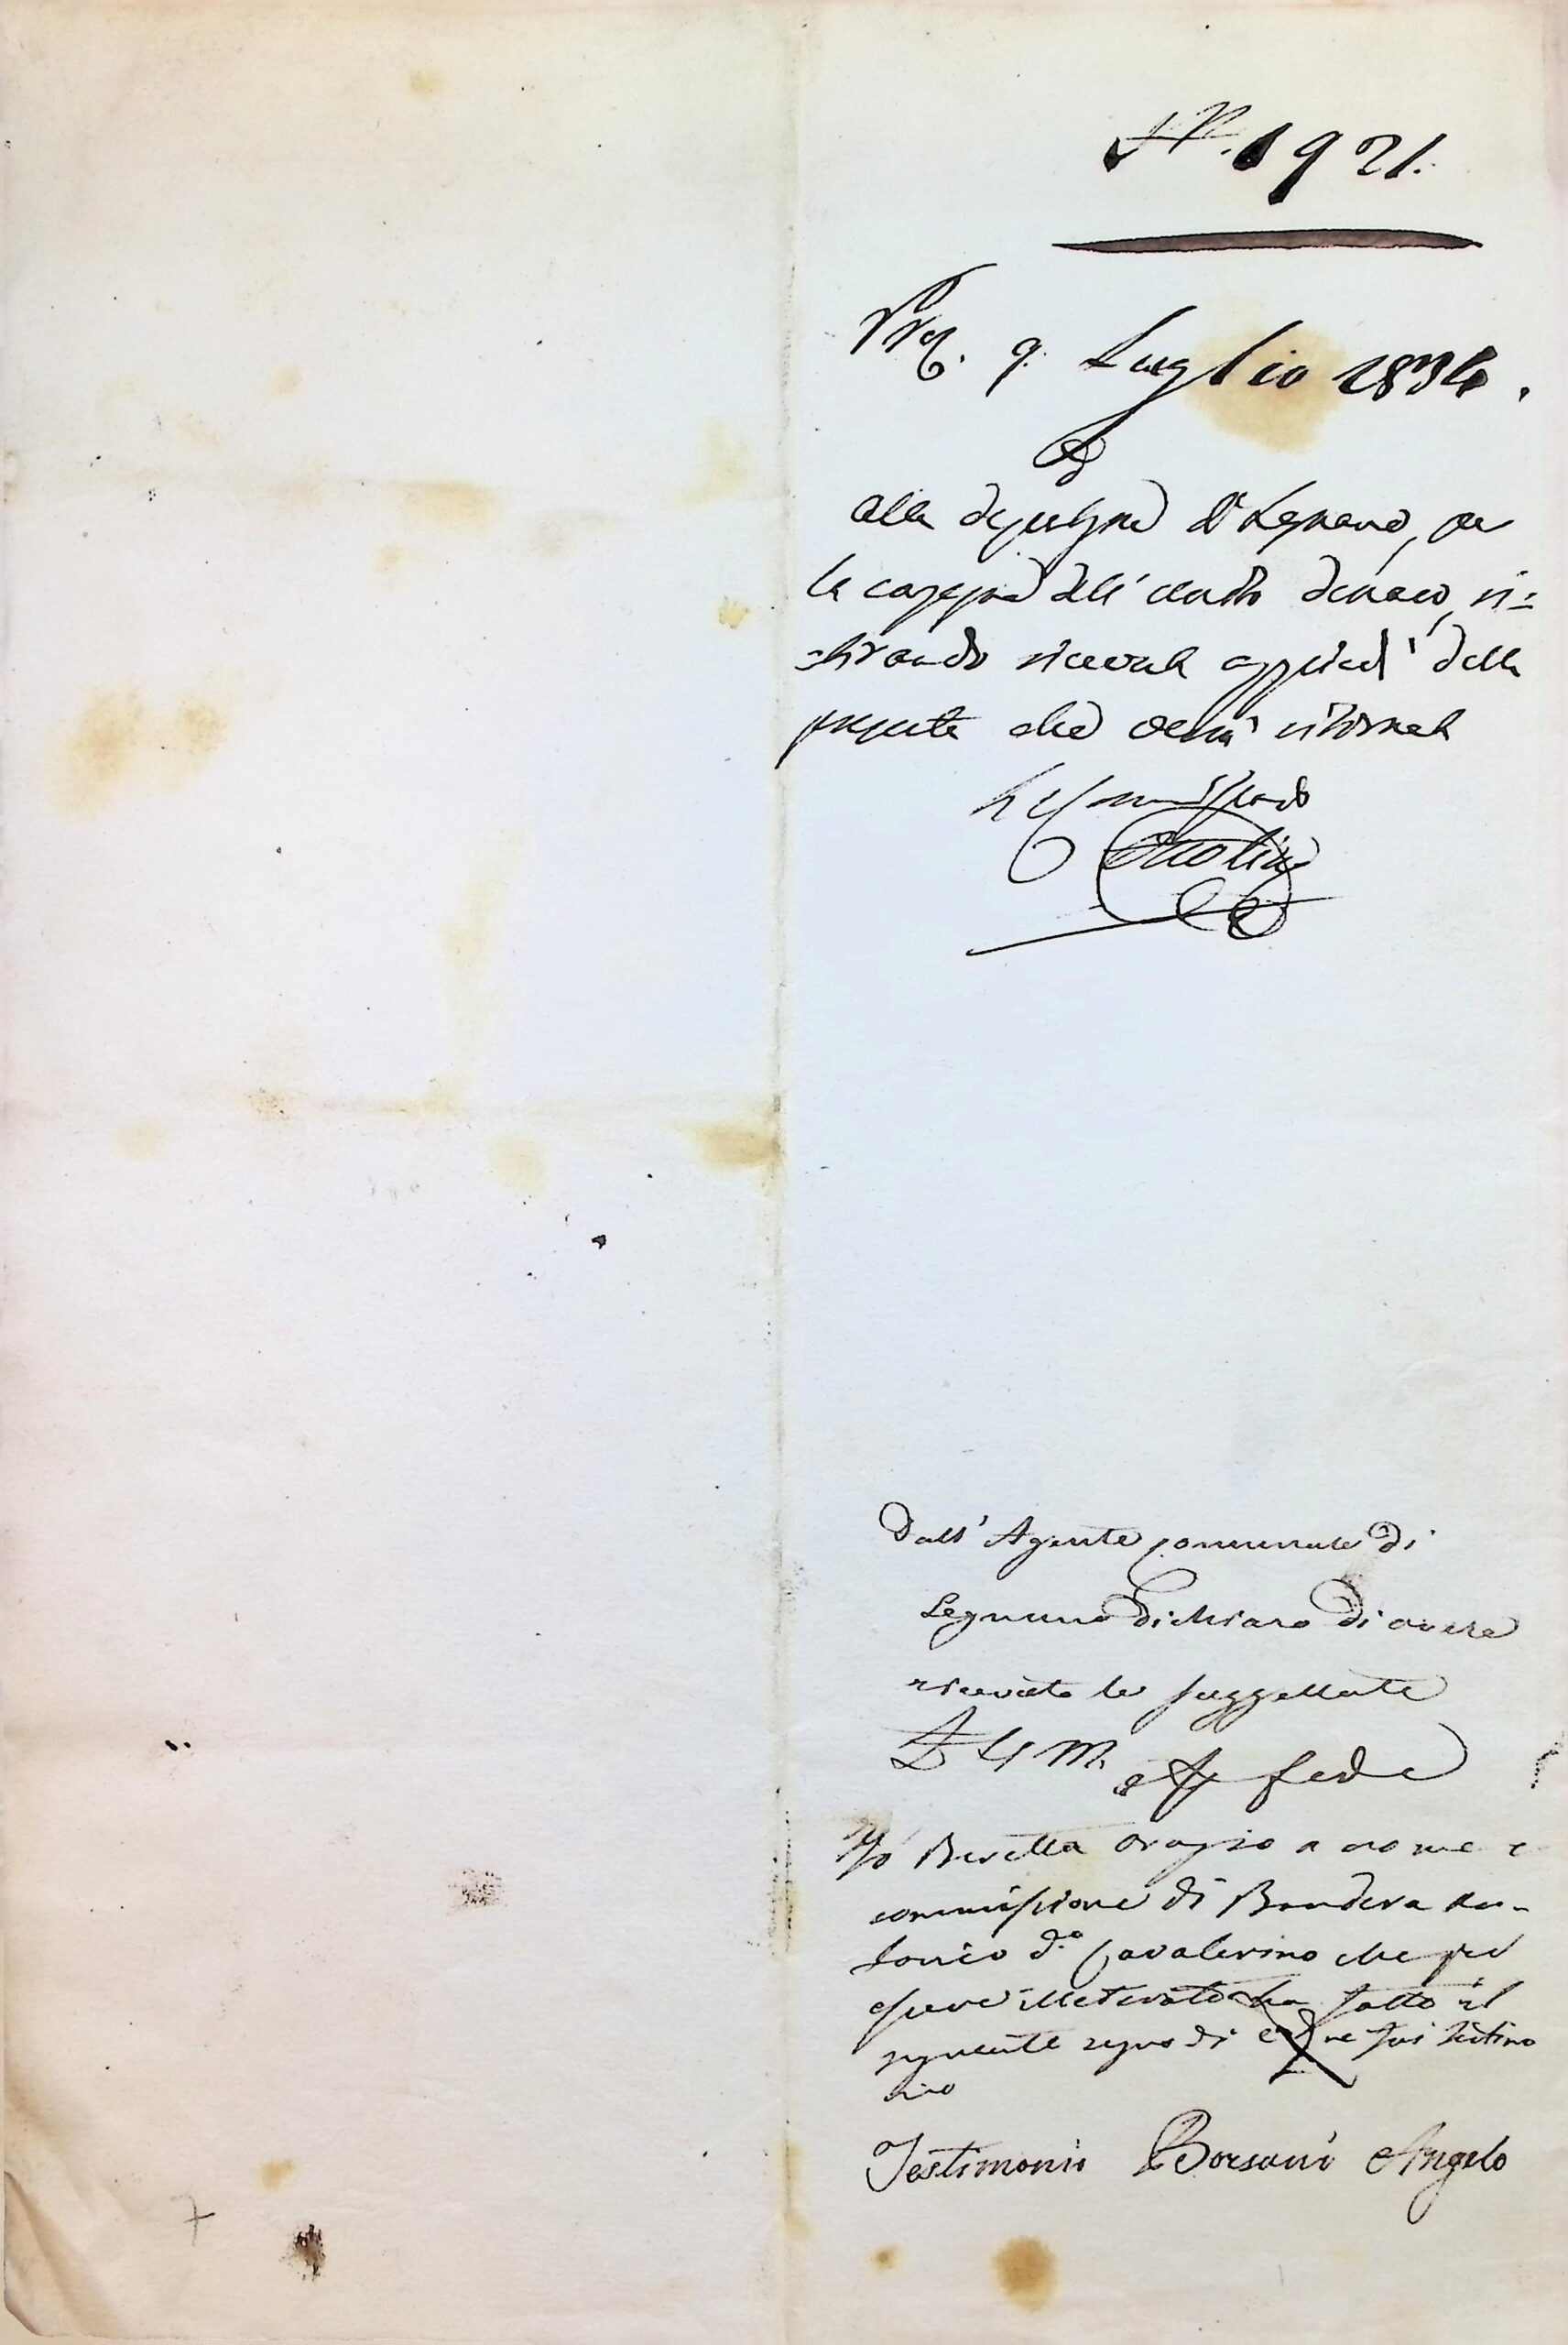 N. 1921.
9. Luglio 1834.
Alla deputazne di Legnano, per
la consegna dell' unito denaro, ri=
tirando ricevuta appiedi della
presente che verrà ritornata
Dall' Agente Comunale di
Legnano dichiaro di avere
ricevuto le suggellate
L 4 m e p fede
Io Beretta Orazio a nome e
commissione di Bandera An-
tonio d.o Cavalerino che per
essere illeterato ha fatto il
seguente segno di croce sui testimo
nio
Testimonio Borsani Angelo